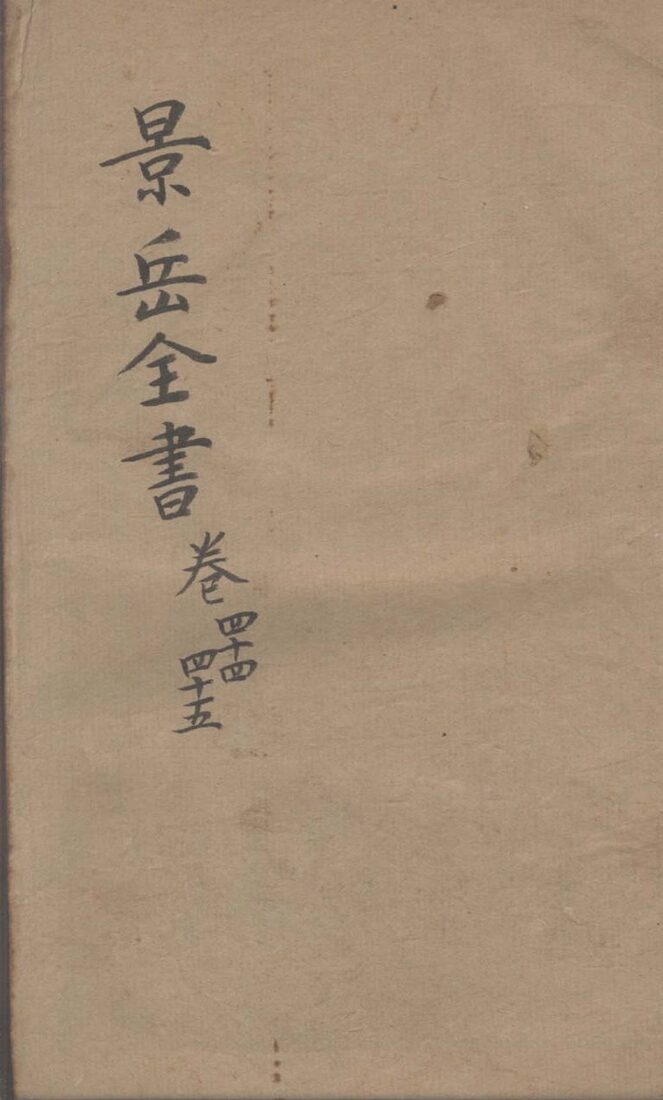 景岳全書
卷四十四
四十五